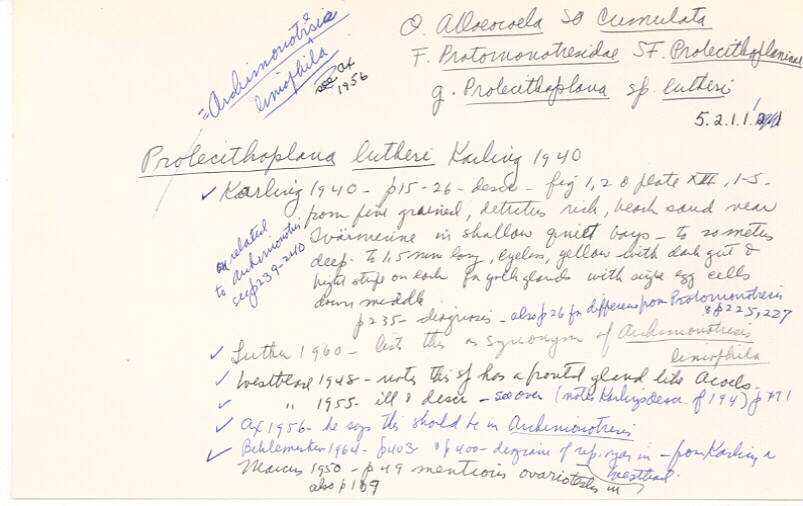 O. Alloeocoela SO Cumulata
F. Protomonotresidae SF. Prolecithoplaninae
g. Prolecithoplana sp. lutheri
5.2.1.1.
= Archimonotresis
limiophila
see Ax
1956
Prolecithoplana lutheri Karling 1940
✓ Karling 1940 - p15-26 - descr - fig 1, 2 & plate XIII, 1-5.
from fine grained, detritus rich, beach sand near
Tvärminne in shallow quiet bays - to 20 meters
deep. to 1.5 mm long, eyeless, yellow with dark gut &
light stripe on each for yolk glands with egg cells
down middle
on related
to Archimonotresis
see p239-240
p235 - diagnosis - also p26 for difference from Protomonotresis
& p225, 227
✓ Luther 1960 - lists this as synonym of Archimonotresis
limiophila
✓ Westblad 1948 - notes this sp has a frontal gland like Acoels.
✓ " 1955 - ill & descr - see over (notes Karlings descr. of 194)
✓ Ax 1956 - he says this should be in Archimonotresis
✓ 1964 - p403 & p400 - of rep. in - from Karling &
Westblad.
Marcus 1950 - p49 mentions ovariotestes in
also p109